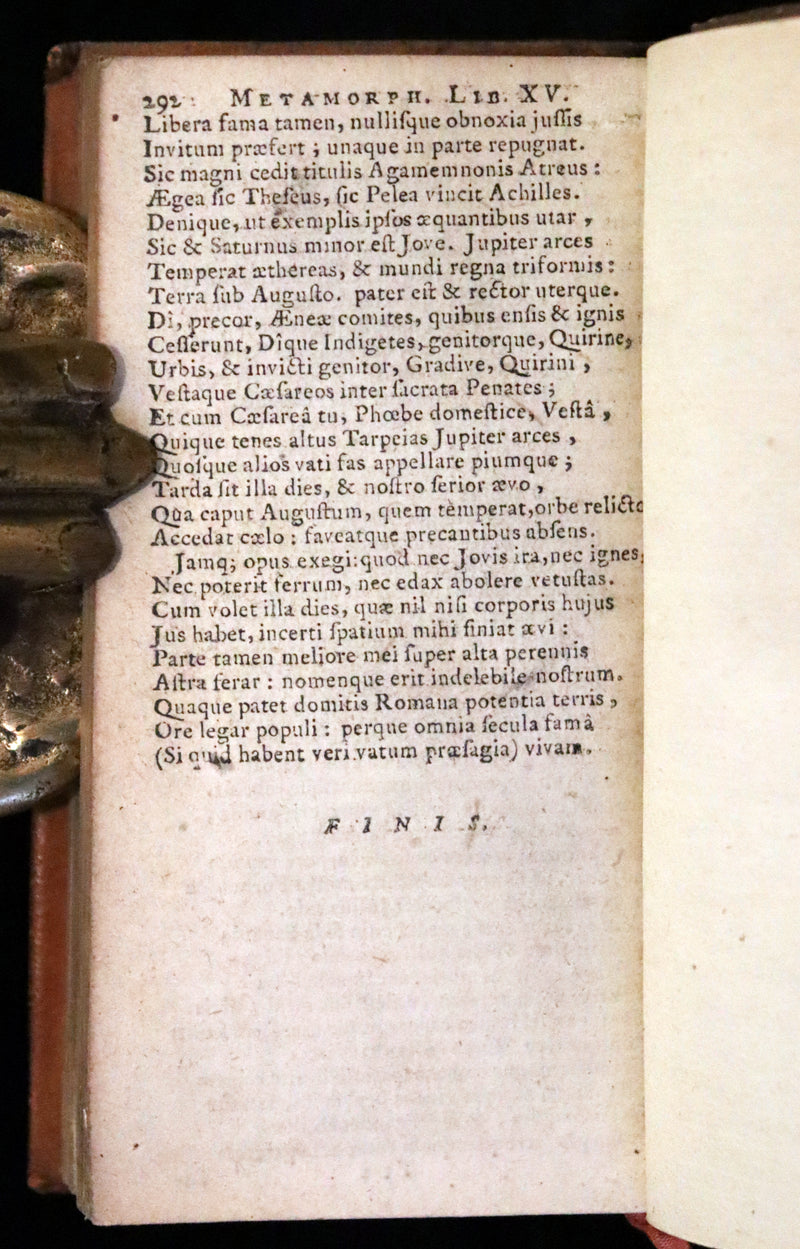 292 METAMORPH. LIB. XV.
Libera fama tamen, nulliſque obnoxia juſſis
Invitum præfert ; unaque in parte repugnat.
Sic magni cedit titulis Agamemnonis Atreus :
Ægea ſic Theſeus, ſic Pelea vincit Achilles.
Denique, ut exemplis ipſos æquantibus utar ,
Sic & Saturnus minor eſt Jove. Jupiter arces
Temperat æthereas, & mundi regna triformis :
Terra ſub Auguſto. pater eſt & rector uterque.
Dî, precor, Æneæ comites, quibus enſis & ignis
Ceſſerunt, Dîque Indigetes, genitorque, Quirine,
Urbis, & invicti genitor, Gradive, Quirini ,
Veſtaque Cæſareos inter ſacrata Penates ;
Et cum Cæſareâ tu, Phœbe domeſtice, Veſtâ ,
Quique tenes altus Tarpeias Jupiter arces ,
Quoſque alios vati fas appellare piumque ;
Tarda ſit illa dies, & noſtro ſerior ævo ,
Qûa caput Auguſtum, quem temperat, orbe relicto
Accedat cælo : faveatque precantibus abſens.
Jamq; opus exegi: quod nec Jovis ira, nec ignes,
Nec poterit ferrum, nec edax abolere vetuſtas.
Cum volet illa dies, quæ nil niſi corporis hujus
Jus habet, incerti ſpatium mihi finiat ævi :
Parte tamen meliore mei ſuper alta perennis
Aſtra ferar : nomenque erit indelebile noſtrum.
Quaque patet domitis Romana potentia terris ,
Ore legar populi : perque omnia ſecula famâ
(Si quid habent veri vatum præſagia) vivam.
FINIS.